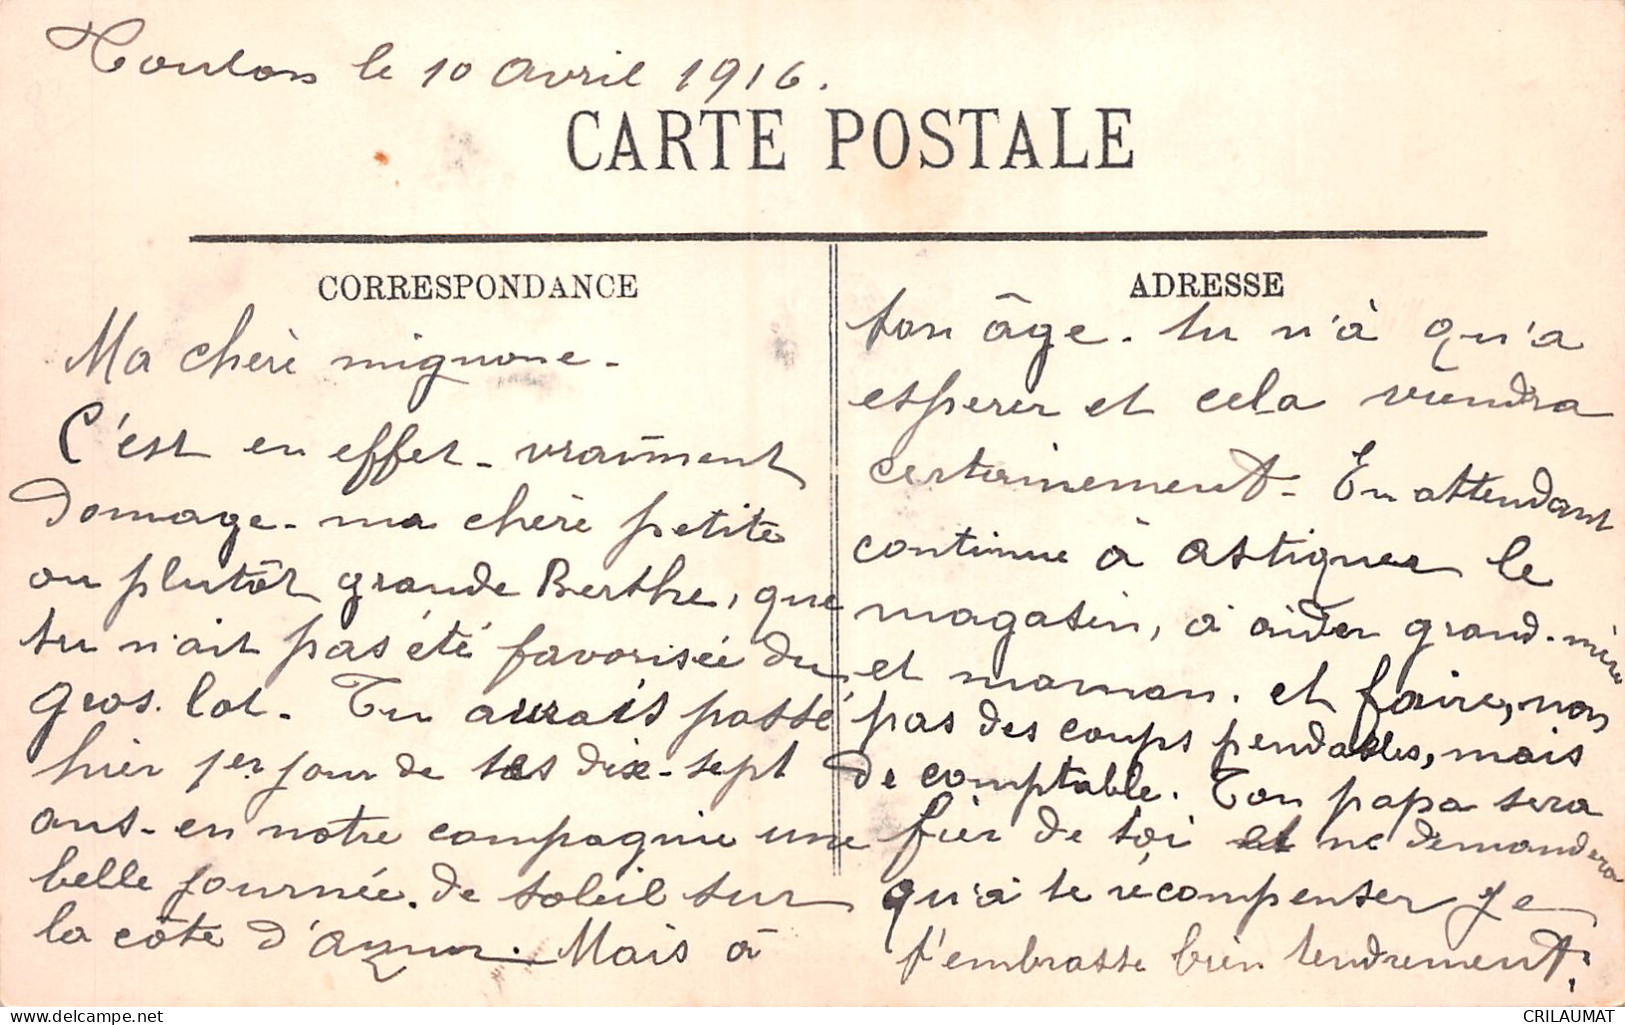 Toulon le 10 avril 1916.
CARTE POSTALE
CORRESPONDANCE
Ma chère mignone -
C'est en effet - vraiment
domage - ma chère petite
ou plutôt grande Berthe, que
tu n'ait pas été favorisée du
gros lot - Tu aurais passé
hier 1er jour de tes dix-sept
ans - en notre compagnie une
belle journée de soleil sur
la côte d'azur. Mais à
ADRESSE
ton âge - tu n'à qu'a
esperer et cela viendra
certainement - En attendant
continue à astiquer le
magasin, à aider grand-mère
et maman. et faire, non
pas des coups pendables, mais
de comptable. Ton papa sera
fier de toi et ne demandera
qu'à te récompenser Je
t'embrasse bien tendrement.
delcampe.net
CRILAUMAT